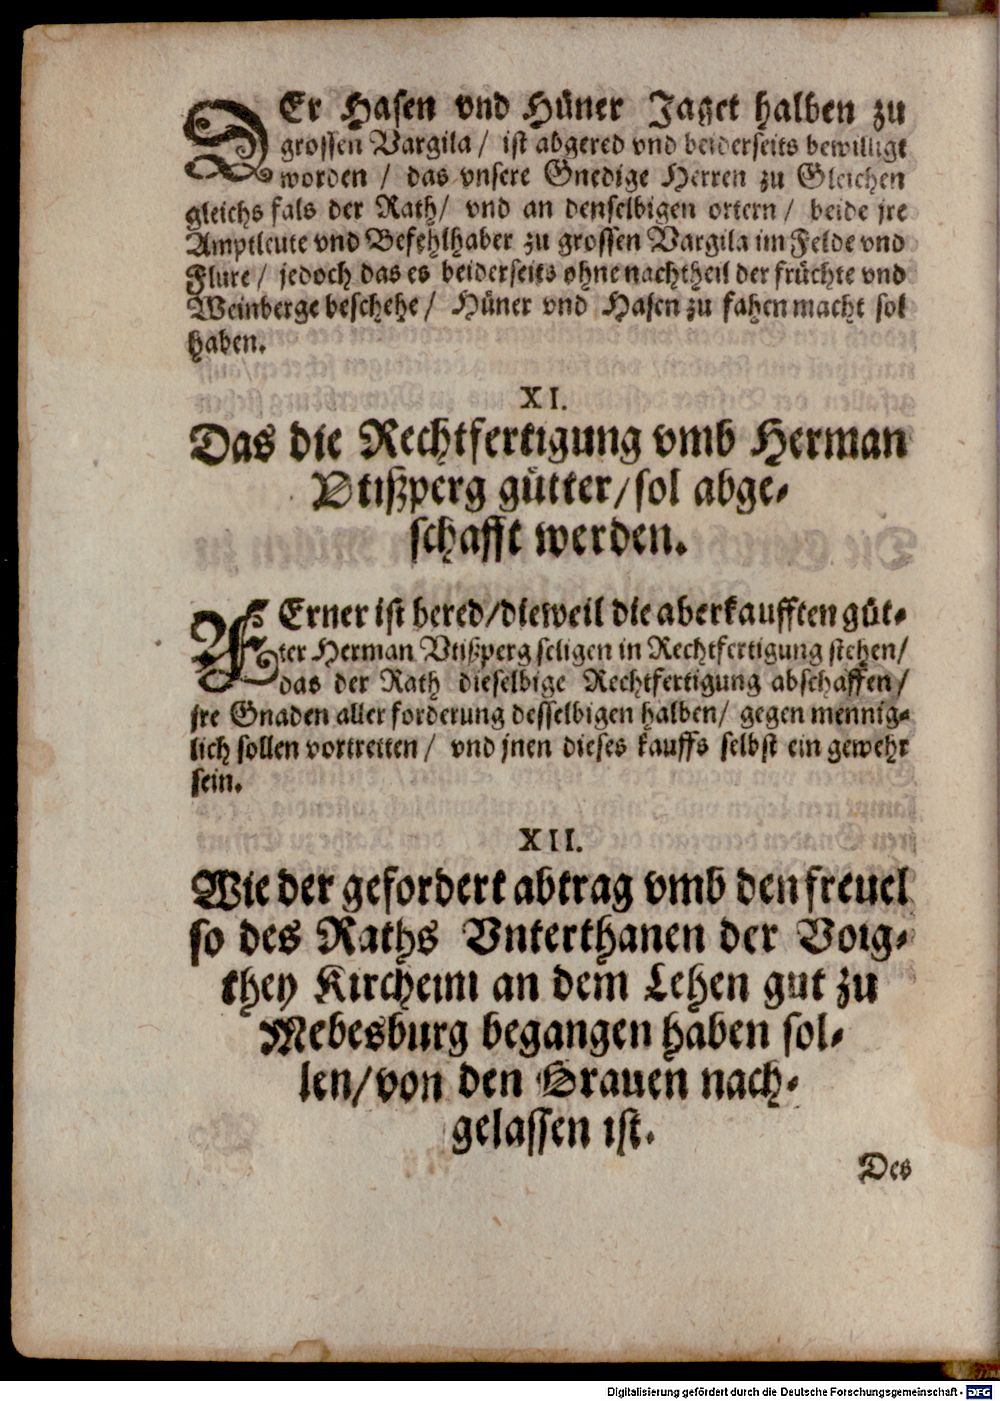 DEr Hasen vnd Hüner Jaget halben zu
grossen Vargila / ist abgered vnd beiderseits bewilligt
worden / das vnsere Gnedige Herren zu Gleichen
gleichs fals der Rath / vnd an denselbigen ortern / beide jre
Amptleute vnd Befehlhaber zu grossen Vargila im Felde vnd
Flure / jedoch das es beiderseits ohne nachtheil der früchte vnd
Weinberge beschehe / Hüner vnd Hasen zu fahen macht sol
haben.
XI.
Das die Rechtfertigung vmb Herman
Vtißperg gütter / sol abge-
schafft werden.
FErner ist bered / dieweil die aberkaufften güt-
ter Herman Vtißperg seligen in Rechtfertigung stehen /
das der Rath dieselbige Rechtfertigung abschaffen /
jre Gnaden aller forderung desselbigen halben / gegen mennig-
lich sollen vortretten / vnd jnen dieses kauffs selbst ein gewehr
sein.
XII.
Wie der gefordert abtrag vmb den freuel
so des Raths Vnterthanen der Voig-
they Kircheim an dem Lehen gut zu
Mebesburg begangen haben sol-
len / von den Grauen nach-
gelassen ist.
Des
Digitalisierung gefördert durch die Deutsche Forschungsgemeinschaft - DFG